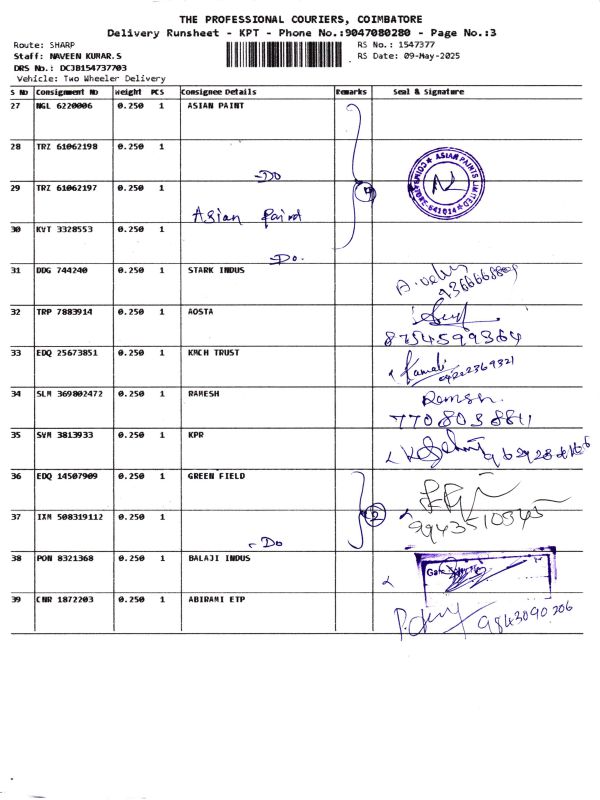 THE PROFESSIONAL COURIERS, COIMBATORE
Delivery Runsheet - KPT - Phone No.:9047080280 - Page No.:3
Route: SHARP RS No.: 1547377
Staff: NAVEEN KUMAR.S RS Date: 09-May-2025
DRS No.: DCJB154737703
Vehicle: Two Wheeler Delivery
S No Consignment No Weight PCS Consignee Details Remarks Seal & Signature
27 NGL 6220006 0.250 1 ASIAN PAINT
28 TRZ 61062198 0.250 1
-Do
29 TRZ 61062197 0.250 1 4
Asian Paint
ASIAN PAINTS LIMITED
COIMBATORE-641014
30 KVT 3328553 0.250 1
-Do.
31 DDG 744240 0.250 1 STARK INDUS
32 TRP 7883914 0.250 1 AOSTA
8754599364
33 EDQ 25673851 0.250 1 KMCH TRUST
Kamali 04222369321
34 SLM 369802472 0.250 1 RAMESH
Ramesh.
7708038841
35 SVM 3813933 0.250 1 KPR
36 EDQ 14507909 0.250 1 GREEN FIELD
37 IXM 508319112 0.250 1 2
9943510545
-Do
38 PON 8321368 0.250 1 BALAJI INDUS
39 CNR 1872203 0.250 1 ABIRAMI ETP
9843090206